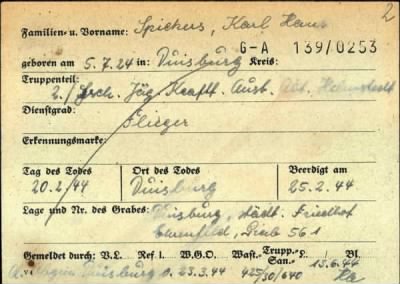 2
Familien- u. Vorname: Spickers, Karl Hans
G-A 139/0253
geboren am 5.7.24 in: Duisburg Kreis:
Truppenteil:
2./ Jäg. Kraftf. Ausb. Abt. Helmstedt
Dienstgrad:
Flieger
Erkennungsmarke:
Tag des Todes Ort des Todes Beerdigt am
20.2.44 Duisburg 25.2.44
Lage und Nr. des Grabes: Duisburg, städt. Friedhof
561
Gemeldet durch: V.L. Ref I. W.G.O. Wast.- Trupp.- San.- L. Bl.
Duisburg v. 23.3.44 425/30/640 13.6.44